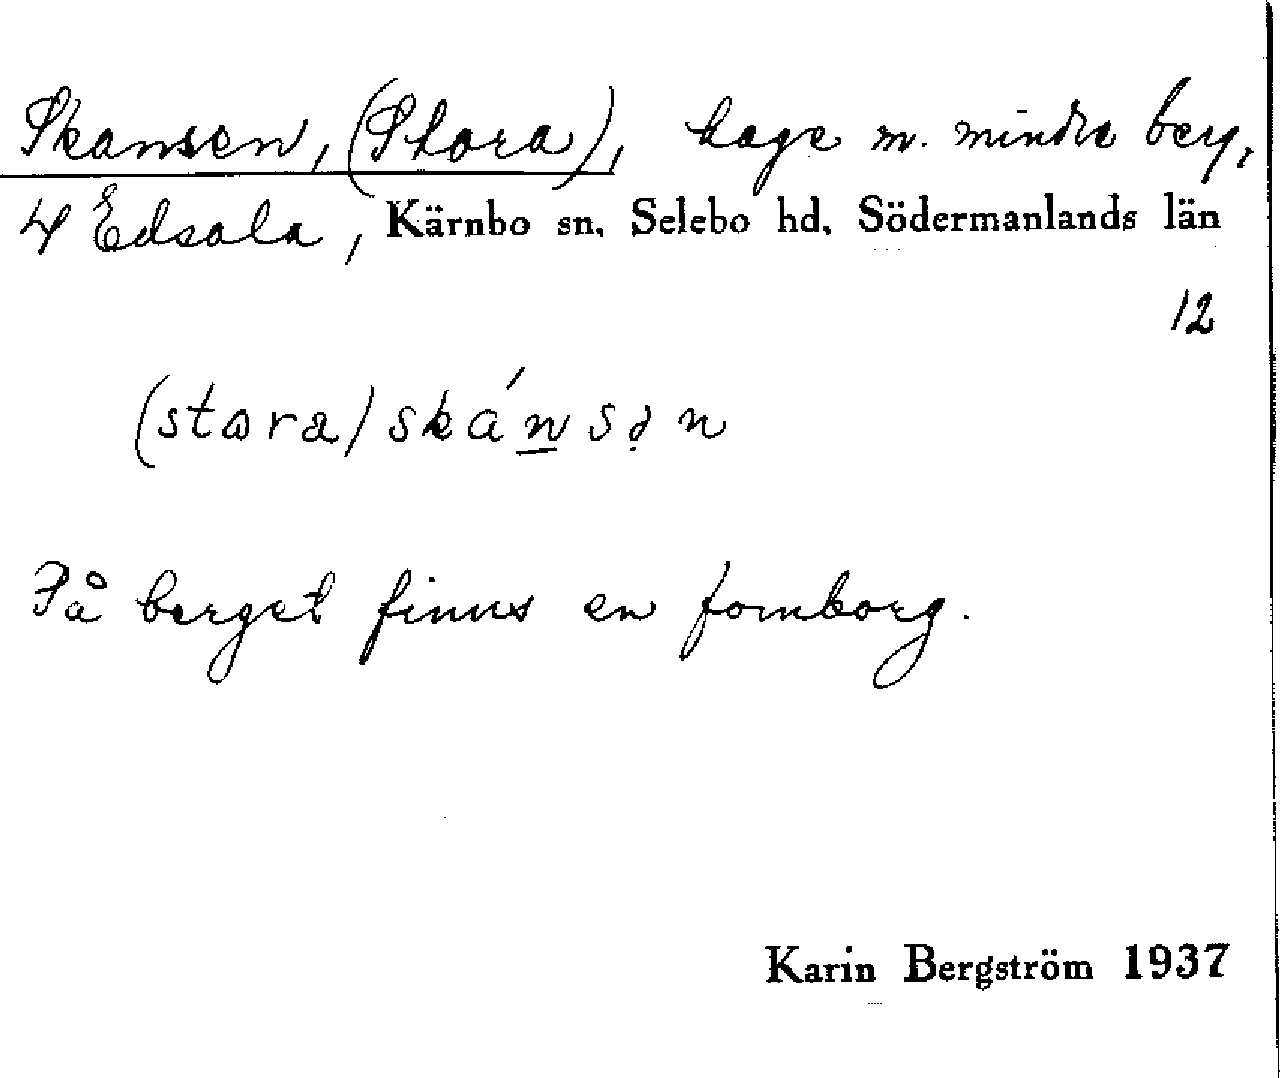 Skansen, (Stora), hage m. mindre berg,
4 Edsala, Kärnbo sn. Selebo hd. Södermanlands län
12
(stora) skánsən
På berget finns en fornborg.
Karin Bergström 1937